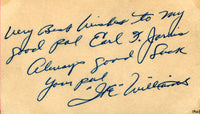 Very Best Wishes to my
good pal Earl F. Jarvis
Always good luck
Your pal
"JE" Williams